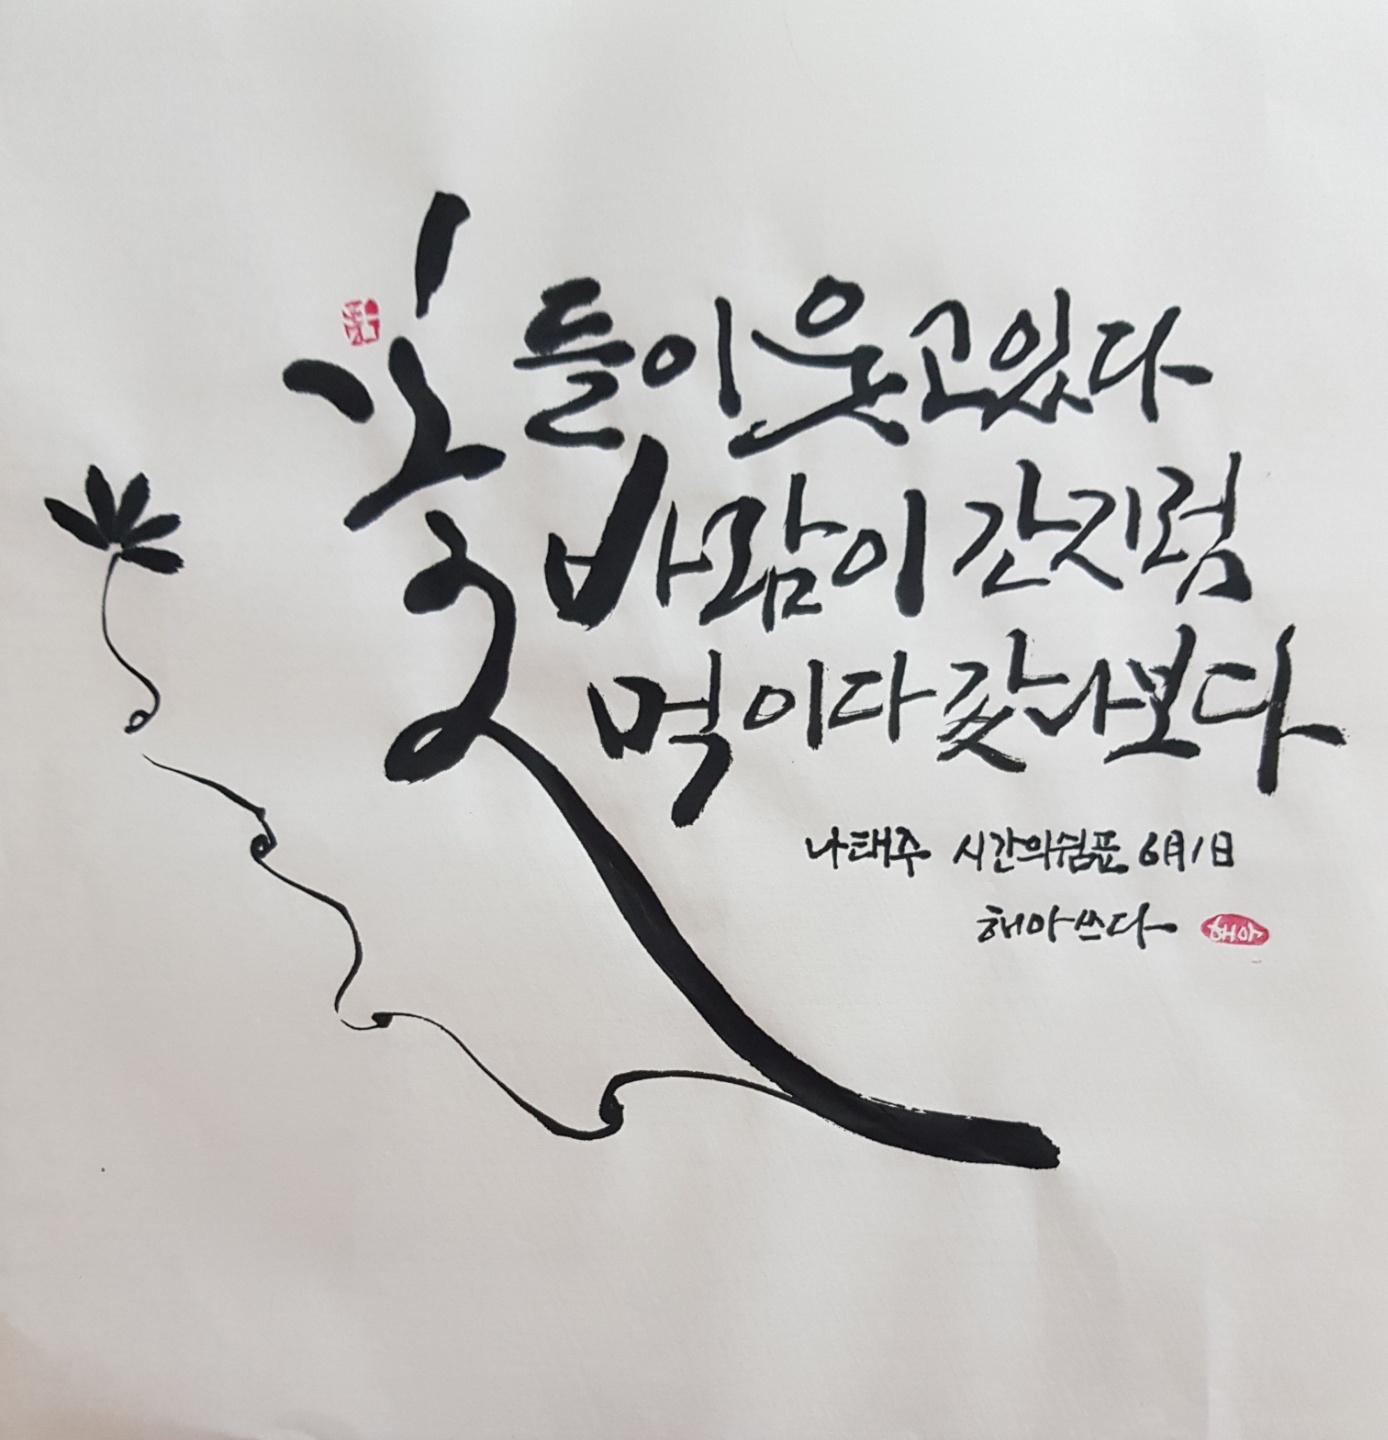 꽃들이 웃고 있다
바람이 간지럼
먹이다 갔나보다
나태주 시간의쉼표 6月1日
해아쓰다
해아